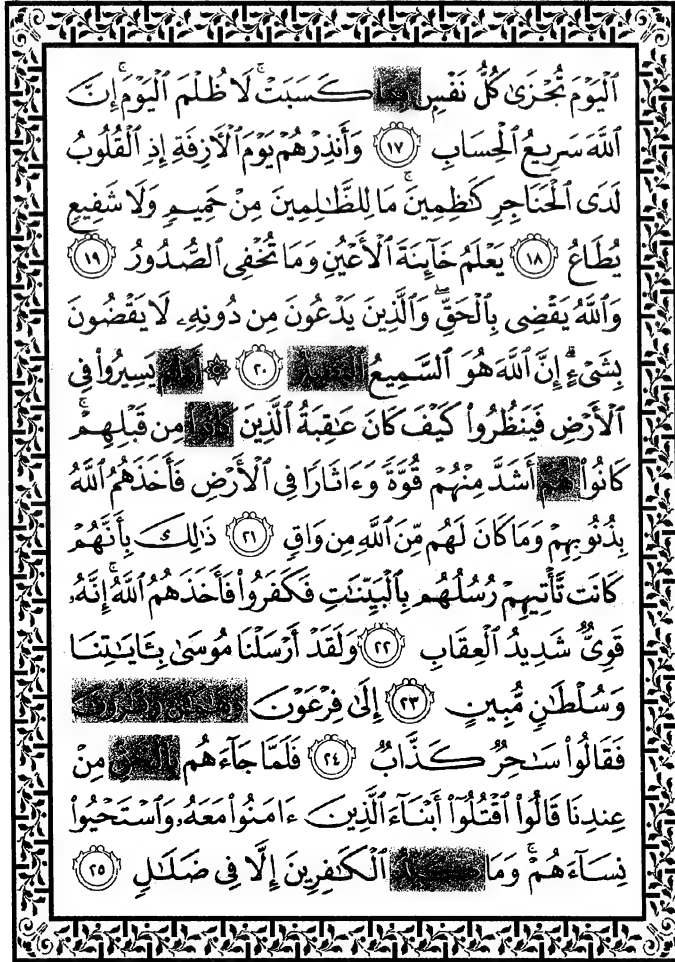 ٱلْيَوْمَ تُجْزَىٰ كُلُّ نَفْسٍ كَسَبَتْ ۚ لَا ظُلْمَ ٱلْيَوْمَ ۚ إِنَّ
ٱللَّهَ سَرِيعُ ٱلْحِسَابِ ١٧ وَأَنذِرْهُمْ يَوْمَ ٱلْأَزِفَةِ إِذِ ٱلْقُلُوبُ
لَدَى ٱلْحَنَاجِرِ كَٰظِمِينَ ۚ مَا لِلظَّٰلِمِينَ مِنْ حَمِيمٍ وَلَا شَفِيعٍ
يُطَاعُ ١٨ يَعْلَمُ خَآئِنَةَ ٱلْأَعْيُنِ وَمَا تُخْفِى ٱلصُّدُورُ ١٩
وَٱللَّهُ يَقْضِى بِٱلْحَقِّ ۖ وَٱلَّذِينَ يَدْعُونَ مِن دُونِهِۦ لَا يَقْضُونَ
بِشَىْءٍ ۗ إِنَّ ٱللَّهَ هُوَ ٱلسَّمِيعُ ٢٠ ۞ أَوَلَمْ يَسِيرُوا۟ فِى
ٱلْأَرْضِ فَيَنظُرُوا۟ كَيْفَ كَانَ عَٰقِبَةُ ٱلَّذِينَ مِن قَبْلِهِمْ ۚ
كَانُوا۟ هُمْ أَشَدَّ مِنْهُمْ قُوَّةً وَءَاثَارًا فِى ٱلْأَرْضِ فَأَخَذَهُمُ ٱللَّهُ
بِذُنُوبِهِمْ وَمَا كَانَ لَهُم مِّنَ ٱللَّهِ مِن وَاقٍ ٢١ ذَٰلِكَ بِأَنَّهُمْ
كَانَت تَّأْتِيهِمْ رُسُلُهُم بِٱلْبَيِّنَٰتِ فَكَفَرُوا۟ فَأَخَذَهُمُ ٱللَّهُ ۚ إِنَّهُۥ
قَوِىٌّ شَدِيدُ ٱلْعِقَابِ ٢٢ وَلَقَدْ أَرْسَلْنَا مُوسَىٰ بِـَٔايَٰتِنَا
وَسُلْطَٰنٍ مُّبِينٍ ٢٣ إِلَىٰ فِرْعَوْنَ
فَقَالُوا۟ سَٰحِرٌ كَذَّابٌ ٢٤ فَلَمَّا جَآءَهُم مِنْ
عِندِنَا قَالُوا۟ ٱقْتُلُوٓا۟ أَبْنَآءَ ٱلَّذِينَ ءَامَنُوا۟ مَعَهُۥ وَٱسْتَحْيُوا۟
نِسَآءَهُمْ ۚ وَمَا ٱلْكَٰفِرِينَ إِلَّا فِى ضَلَٰلٍ ٢٥